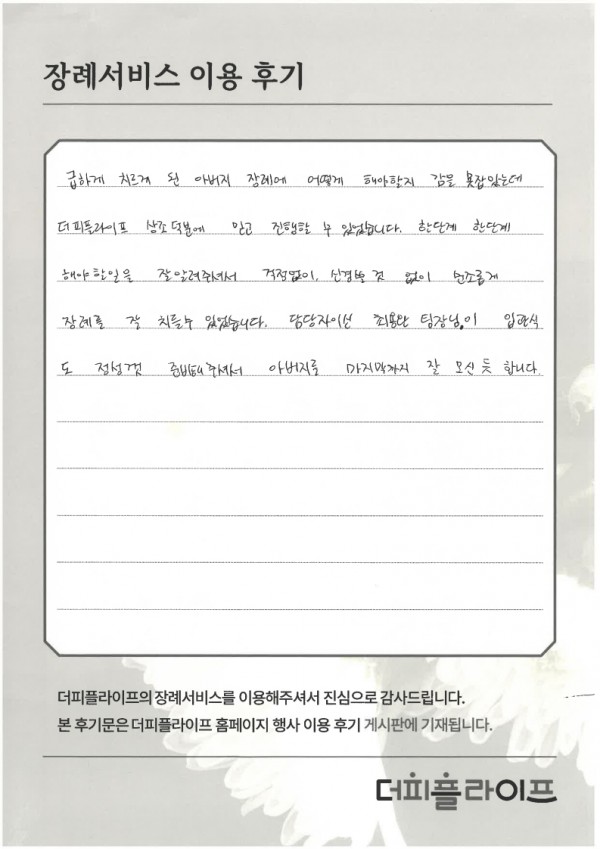 장례서비스 이용 후기
급하게 치르게 된 아버지 장례에 어떻게 해야할지 감을 못잡았는데
더피플라이프 상조 덕분에 믿고 진행할 수 있었습니다. 한단계 한단계
해야할일을 잘알려주셔서 걱정없이, 신경쓸 것 없이 순조롭게
장례를 잘 치를수 있었습니다. 담당자이신 팀장님이 입관식
도 정성껏 준비해주셔서 아버지를 마지막까지 잘 모신 듯 합니다.
더피플라이프의 장례서비스를 이용해주셔서 진심으로 감사드립니다.
본 후기문은 더피플라이프 홈페이지 행사 이용 후기 게시판에 기재됩니다.
더피플라이프